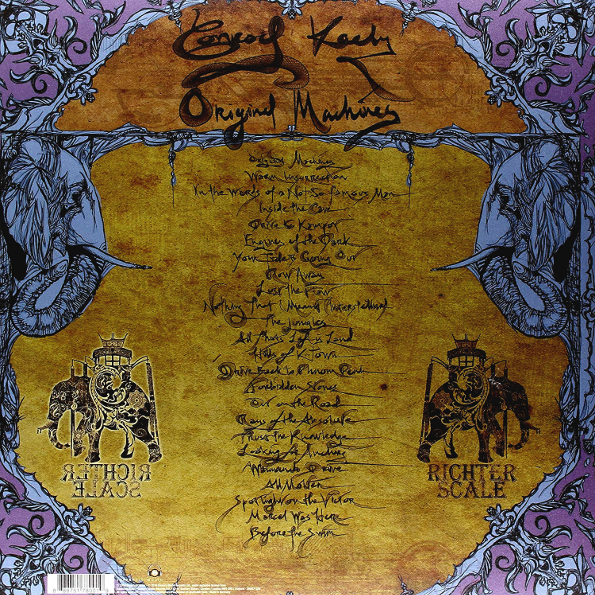 Conrad Keely
Original Machines
Original Machines
Warm Insurrection
In the Words of a Not So Famous Man
Inside the Cave
Drive to Kampot
Engines of the Dark
Your Tide Is Going Out
Row Away
Lost the Flow
Nothing That I Meant
The Jungles
All That's Left is Land
Hills of K-Town
Drive Back to Phnom Penh
Forbidden Stones
Out on the Road
Rays of the Absolute
Trust the Knowledge
Looking At Anchors
Nomando Drive
All Molten
Spotlight on the Victor
Marcel Was Here
Before the Swim
RICHTER
SCALE
RICHTER
SCALE